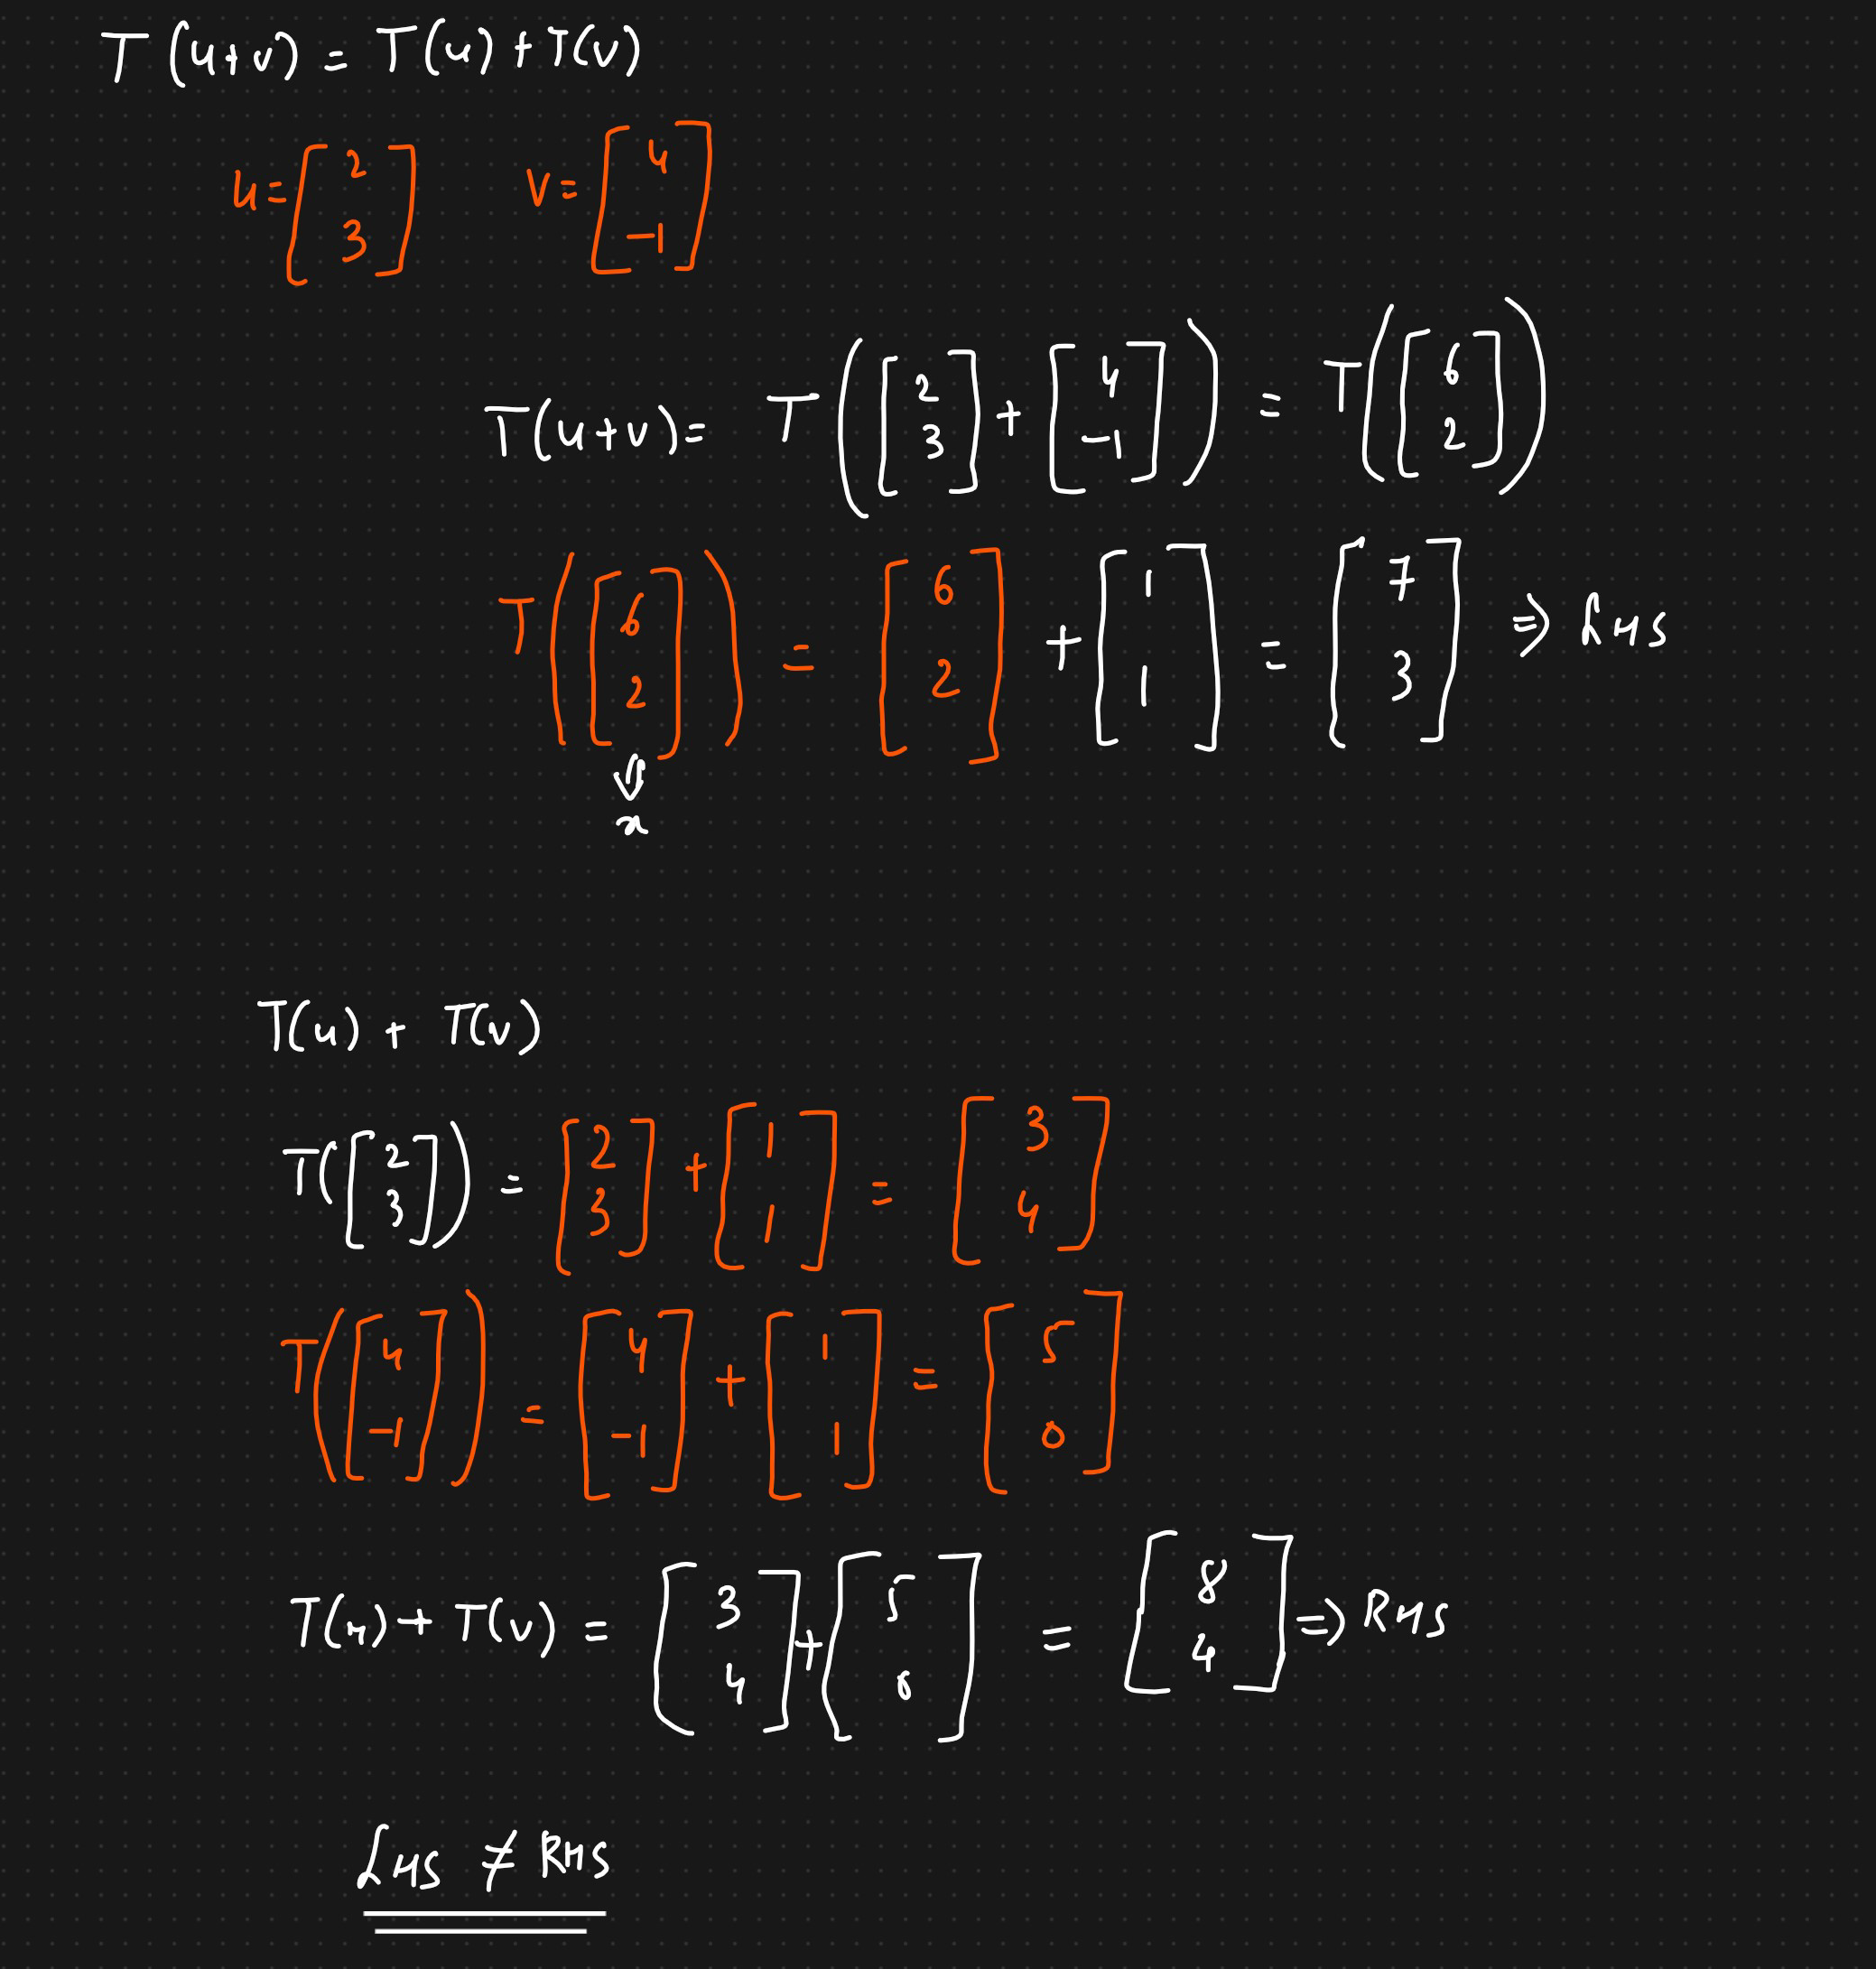 T(u+v) = T(u)+T(v)
u = [2 3] v = [4 -1]
T(u+v) = T([2 3] + [4 -1]) = T([6 2])
T([6 2]) = [6 2] + [1 1] = [7 3] ⇒ LHS
⇓
x
T(u) + T(v)
T([2 3]) = [2 3] + [1 1] = [3 4]
T([4 -1]) = [4 -1] + [1 1] = [5 0]
T(u) + T(v) = [3 4] + [5 0] = [8 4] ⇒ RHS
LHS ≠ RHS